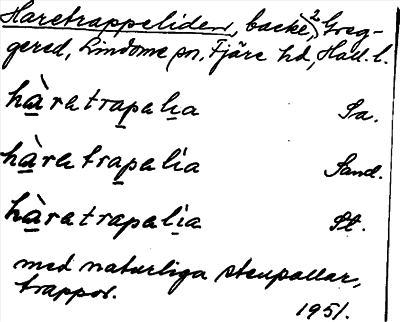 Haretrappeliden, backe, 2 Greg-
gered, Lindome sn, Fjäre hd, Hall. l.
hàratrapalia Sa.
hàratrapalia Sand.
hàratrapalia St.
med naturliga stenpallar,
trappor.
1951.